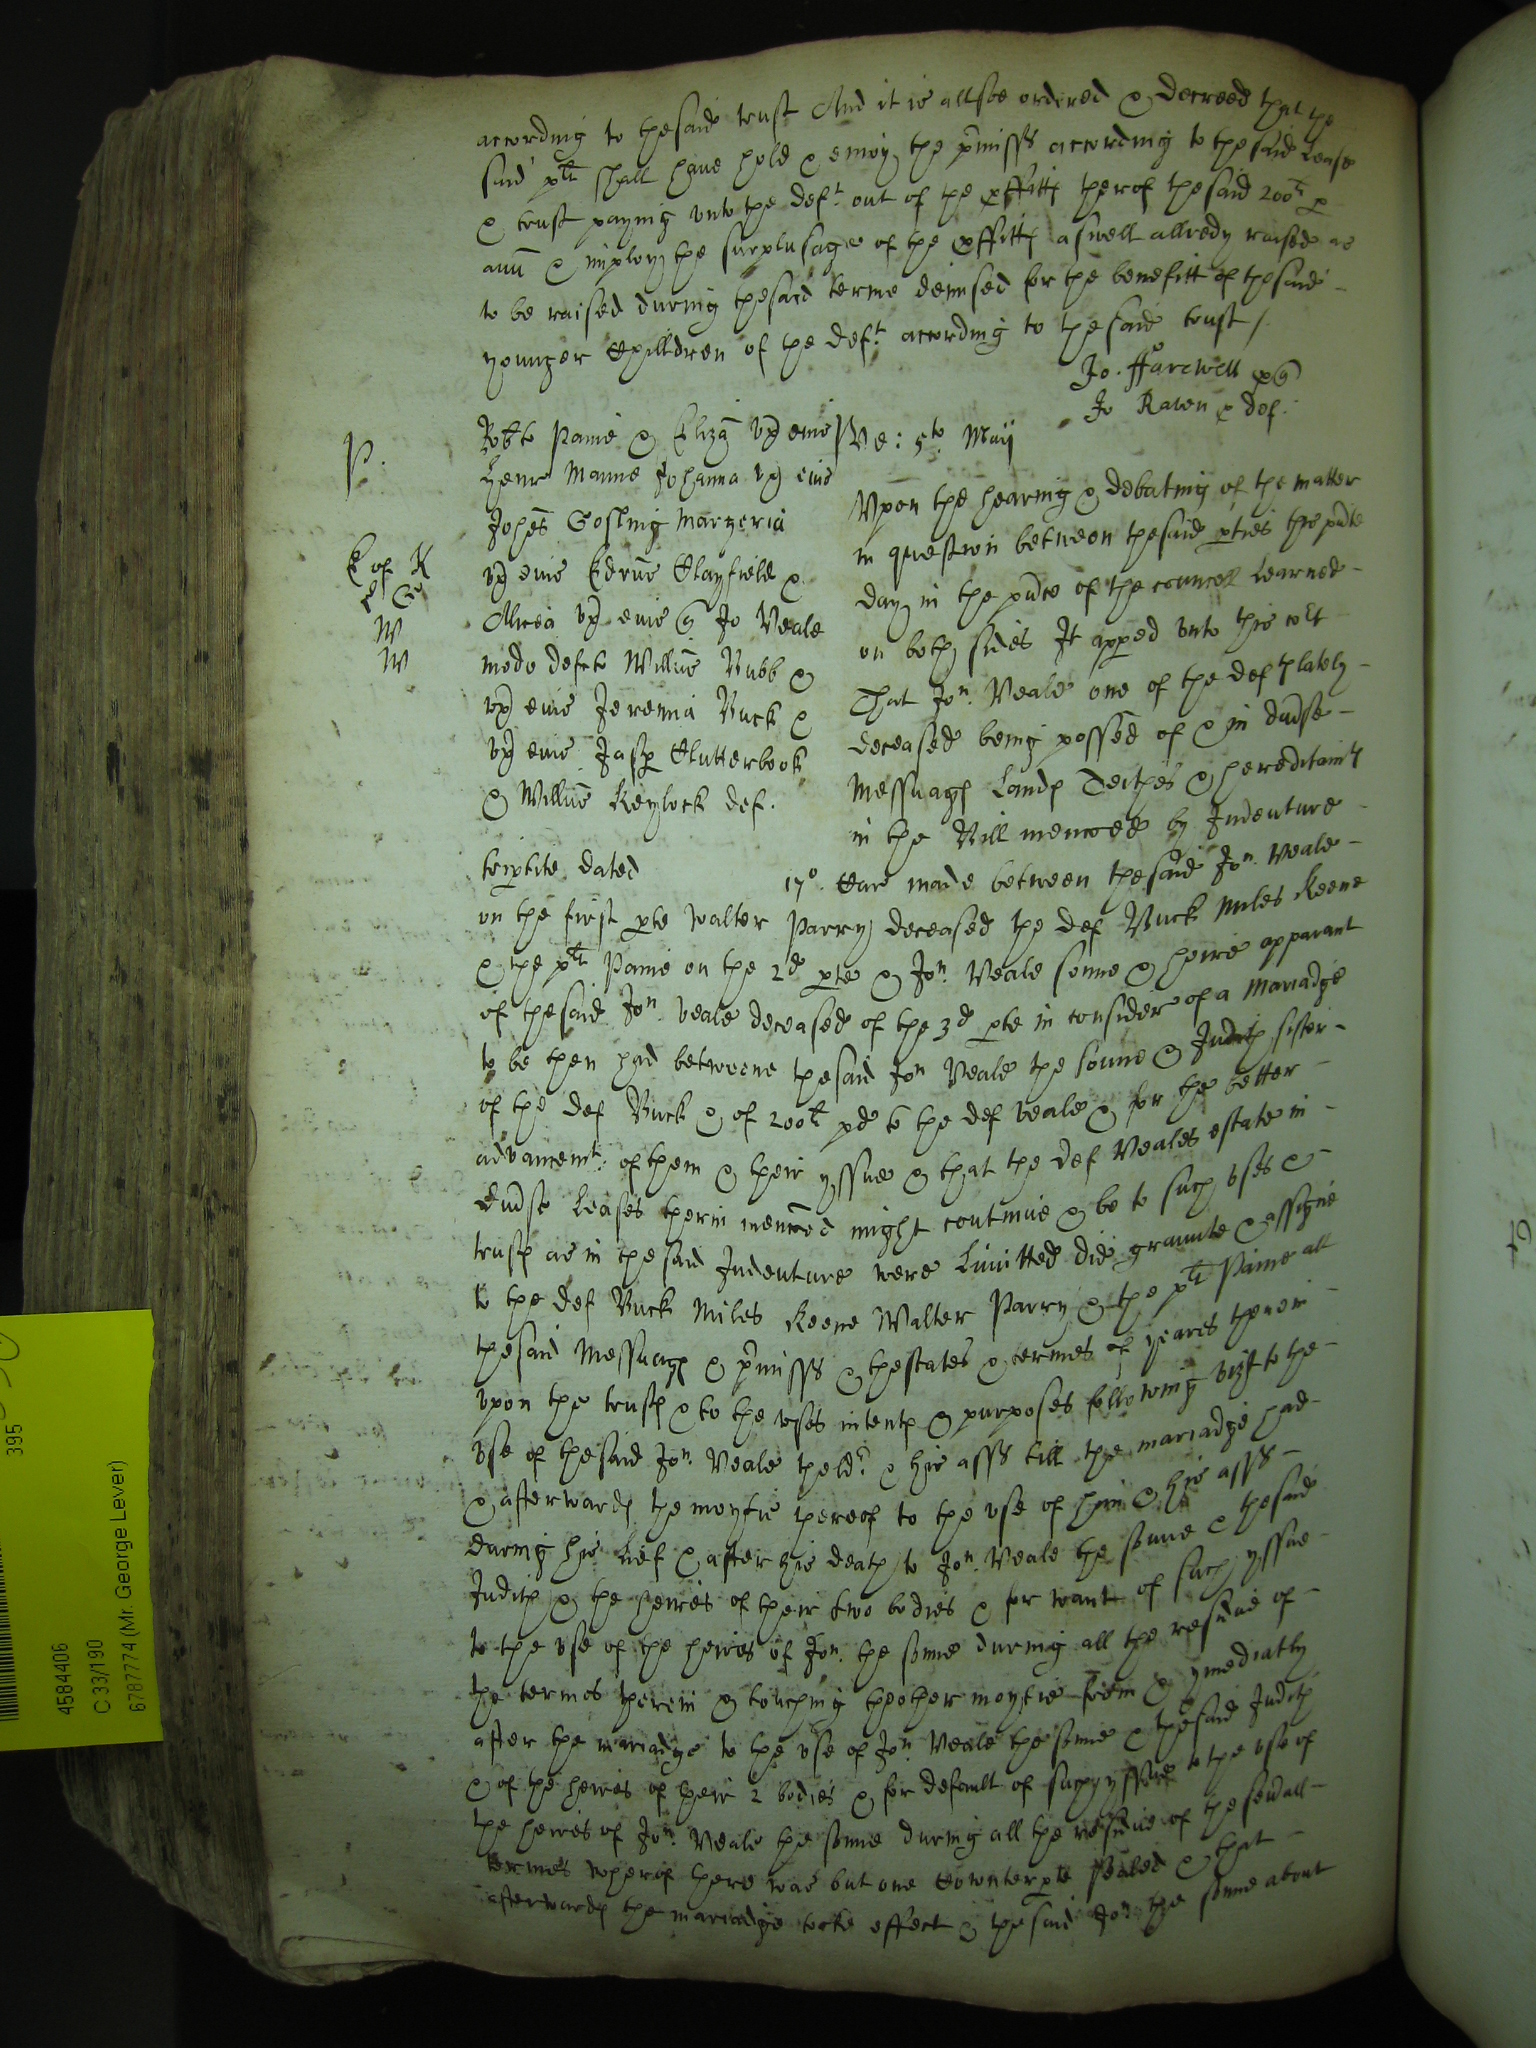 according to thesaid trust And it is allsoe ordered & decreed that the
said plt shall have hold & enioy the pmisss according to the said Lease
& trust paying unto the deft out of the pffitts therof thesaid 200li p
ann & imploy the surplusage of the pffitts aswell allredy raised as
to be raised during thesaid terme demised for the benefitt of thesaid
younger Chilldren of the deft according to the said trust /
Jo. Farewell p q
Jo Raven p def.
P.
E of K
E G
W
W
Robto Paine & Eliza ux eius
Henr Manne Johanna ux eius
Johes Gosling Margeria
ux eius Edrus Clayfield &
Alicea ux eius q Jo Veale
modo defcto Willus Bubb &
ux eius Jeremia Buck &
ux eius Jasp Clutterbook
& Willus Keylock def.
Ve: 5to Maij
Upon the hearing & debating of the matter
in question betweon thesaid pties this pnte
day in the pnce of the councell Learned
on both sides It apped unto this cort
That Jon. Veale one of the defts lately
deceased being possed of & in divse
Messuags Lands Teithes & hereditamts
in the Bill menconed by Indenture
triptite dated 17o. Car made between thesaid Jon. Veale
on the first pte Walter Parry deceased the def Buck Miles Keene
& the plt Paine on the 2d pte & Jon. Veale sonne & heire apparant
of thesaid Jon. Veale deceased of the 3d pte in consider of a Mariadge
to be then had betweene thesaid Jon Veale the sonne & Judith sister
of the def Buck & of 200li pd to the def Veale & for the better
advancemt. of them & their yssue & that the def Veales estate in
divse Leases therin menconed might continue & be to such uses &
trusts as in the said Indenture were Limitted did graunte & assigne
to the def Buck Miles Keene Walter Parry & the plt Paine all
thesaid Messuags & pmisss & thestates & termes of yeares therein
upon the trusts & to the uses intents & purposes following vizt to the
use of thesaid Jon. Veale theldr. & his asss till the mariadge had
& afterwards the moytie thereof to the use of him & his asss
during his Lief & after his death to Jon. Veale the sonne & thesaid
Judith & the heires of their two bodies & for want of such yssue
to the use of the heires of Jon. the sonne during all the residue of
the termes therein & touching thother moytie from & ymediatly
after the mariadge to the use of Jon. Veale the sonne & thesaid Judith
& of the heires of their 2 bodies & for default of such yssue to the use of
the heires of Jon. Veale the sonne during all the residue of the sevall
termes wherof there was but one Counterpte sealed & that
afterwards the mariadge tooke effect & thesaid Jon. the sonne about
395
4584406
C 33/190
6787774 (Mr. George Lever)